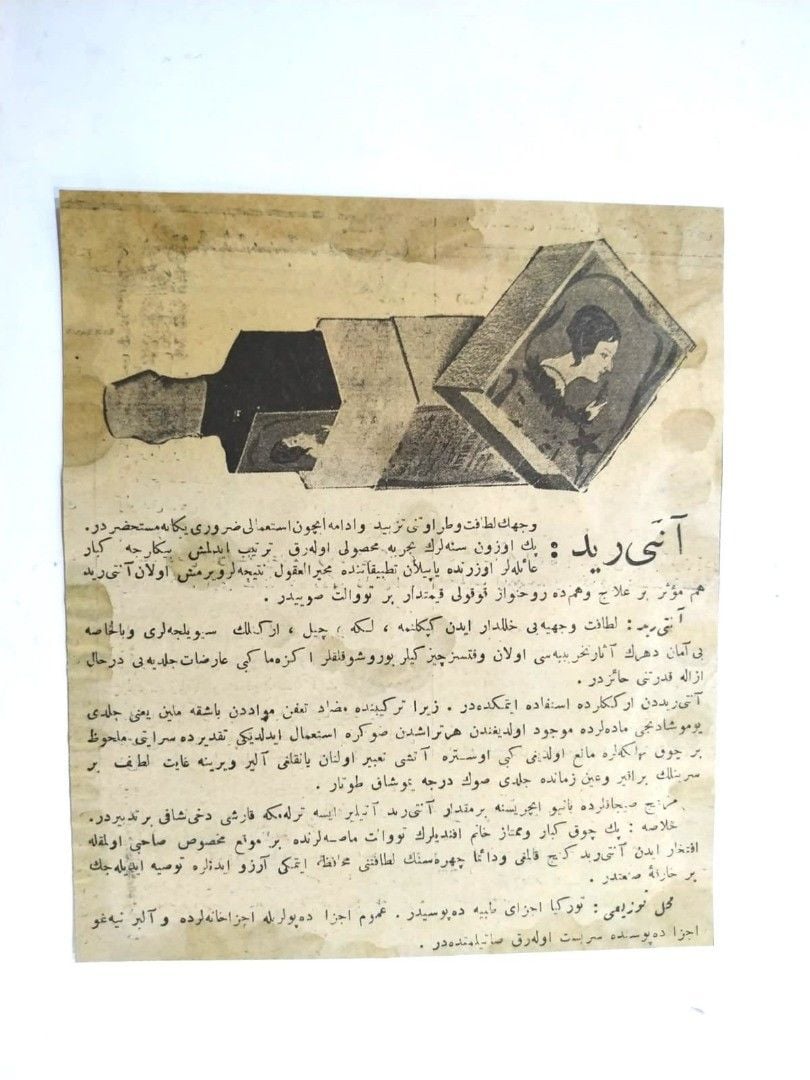 آنتی رید :
وجهك لطافت وطراوتنی تزیید وادامه ایچون استعمالی ضروری یكانه مستحضردر.
پك اوزون سنه‌لرك تجربه محصولی اوله‌رق ترتیب ایدلمش بیكلرجه كبار
عائله‌لر اوزرنده یاپیلان تطبیقاتنده محیرالعقول نتیجه‌لر ویرمش اولان آنتی رید
هم مؤثر بر علاج وهم‌ده روحنواز قوقولی قیمتدار بر تووالت صوییدر .
آنتی رید : لطافت وجهیه‌یی خللدار ایدن ، لكه ، چیل ، ارككلك سیویلجه‌لری وبالخاصه
بی آمان دهرك آثار تخریبیه‌سی اولان وقتسز چیزكیلر بوروشوقلقلر اكزه‌ما كبی عارضات جلدیه‌یی درحال
ازاله قدرتنی حائزدر .
آنتی ریددن ارككلرده استفاده ایتمكده‌در . زیرا تركیبنده مضاد تعفن مواددن باشقه ملین یعنی جلدی
یوموشادیجی ماده‌لرده موجود اولدیغندن هر تراشدن صوكره استعمال ایدلدیكی تقدیرده سرایتی ملحوظ
بر چوق تهلكه‌لره مانع اولدیغی كبی اوستره آتشی تعبیر اولنان یانقلغی آلیر ویرینه غایت لطیف بر
سرینلك براقیر وعین زمانده جلدی صوك درجه یوموشاق طوتار .
صیجاقلرده بانیو ایچریسنه برمقدار آنتی رید آتیلیر ایسه ترله‌مكه قارشی دخی شافی بر تدبیردر.
خلاصه : پك چوق كبار وممتاز خانم افندیلرك تووالت ماصه‌لرنده بر موقع مخصوص صاحبی اولمقله
افتخار ایدن آنتی رید كنج قالمغی ودائما چهره‌سنك لطافتنی محافظه ایتمكی آرزو ایدنلره توصیه ایدیله‌جك
بر خارقهٔ صنعتدر .
محل توزیعی : توركیا اجزای طبیه ده‌پوسیدر . عموم اجزا ده‌پولریله اجزاخانه‌لرده و
اجزا ده‌پوسنده سربست اوله‌رق صاتیلمقده‌در .